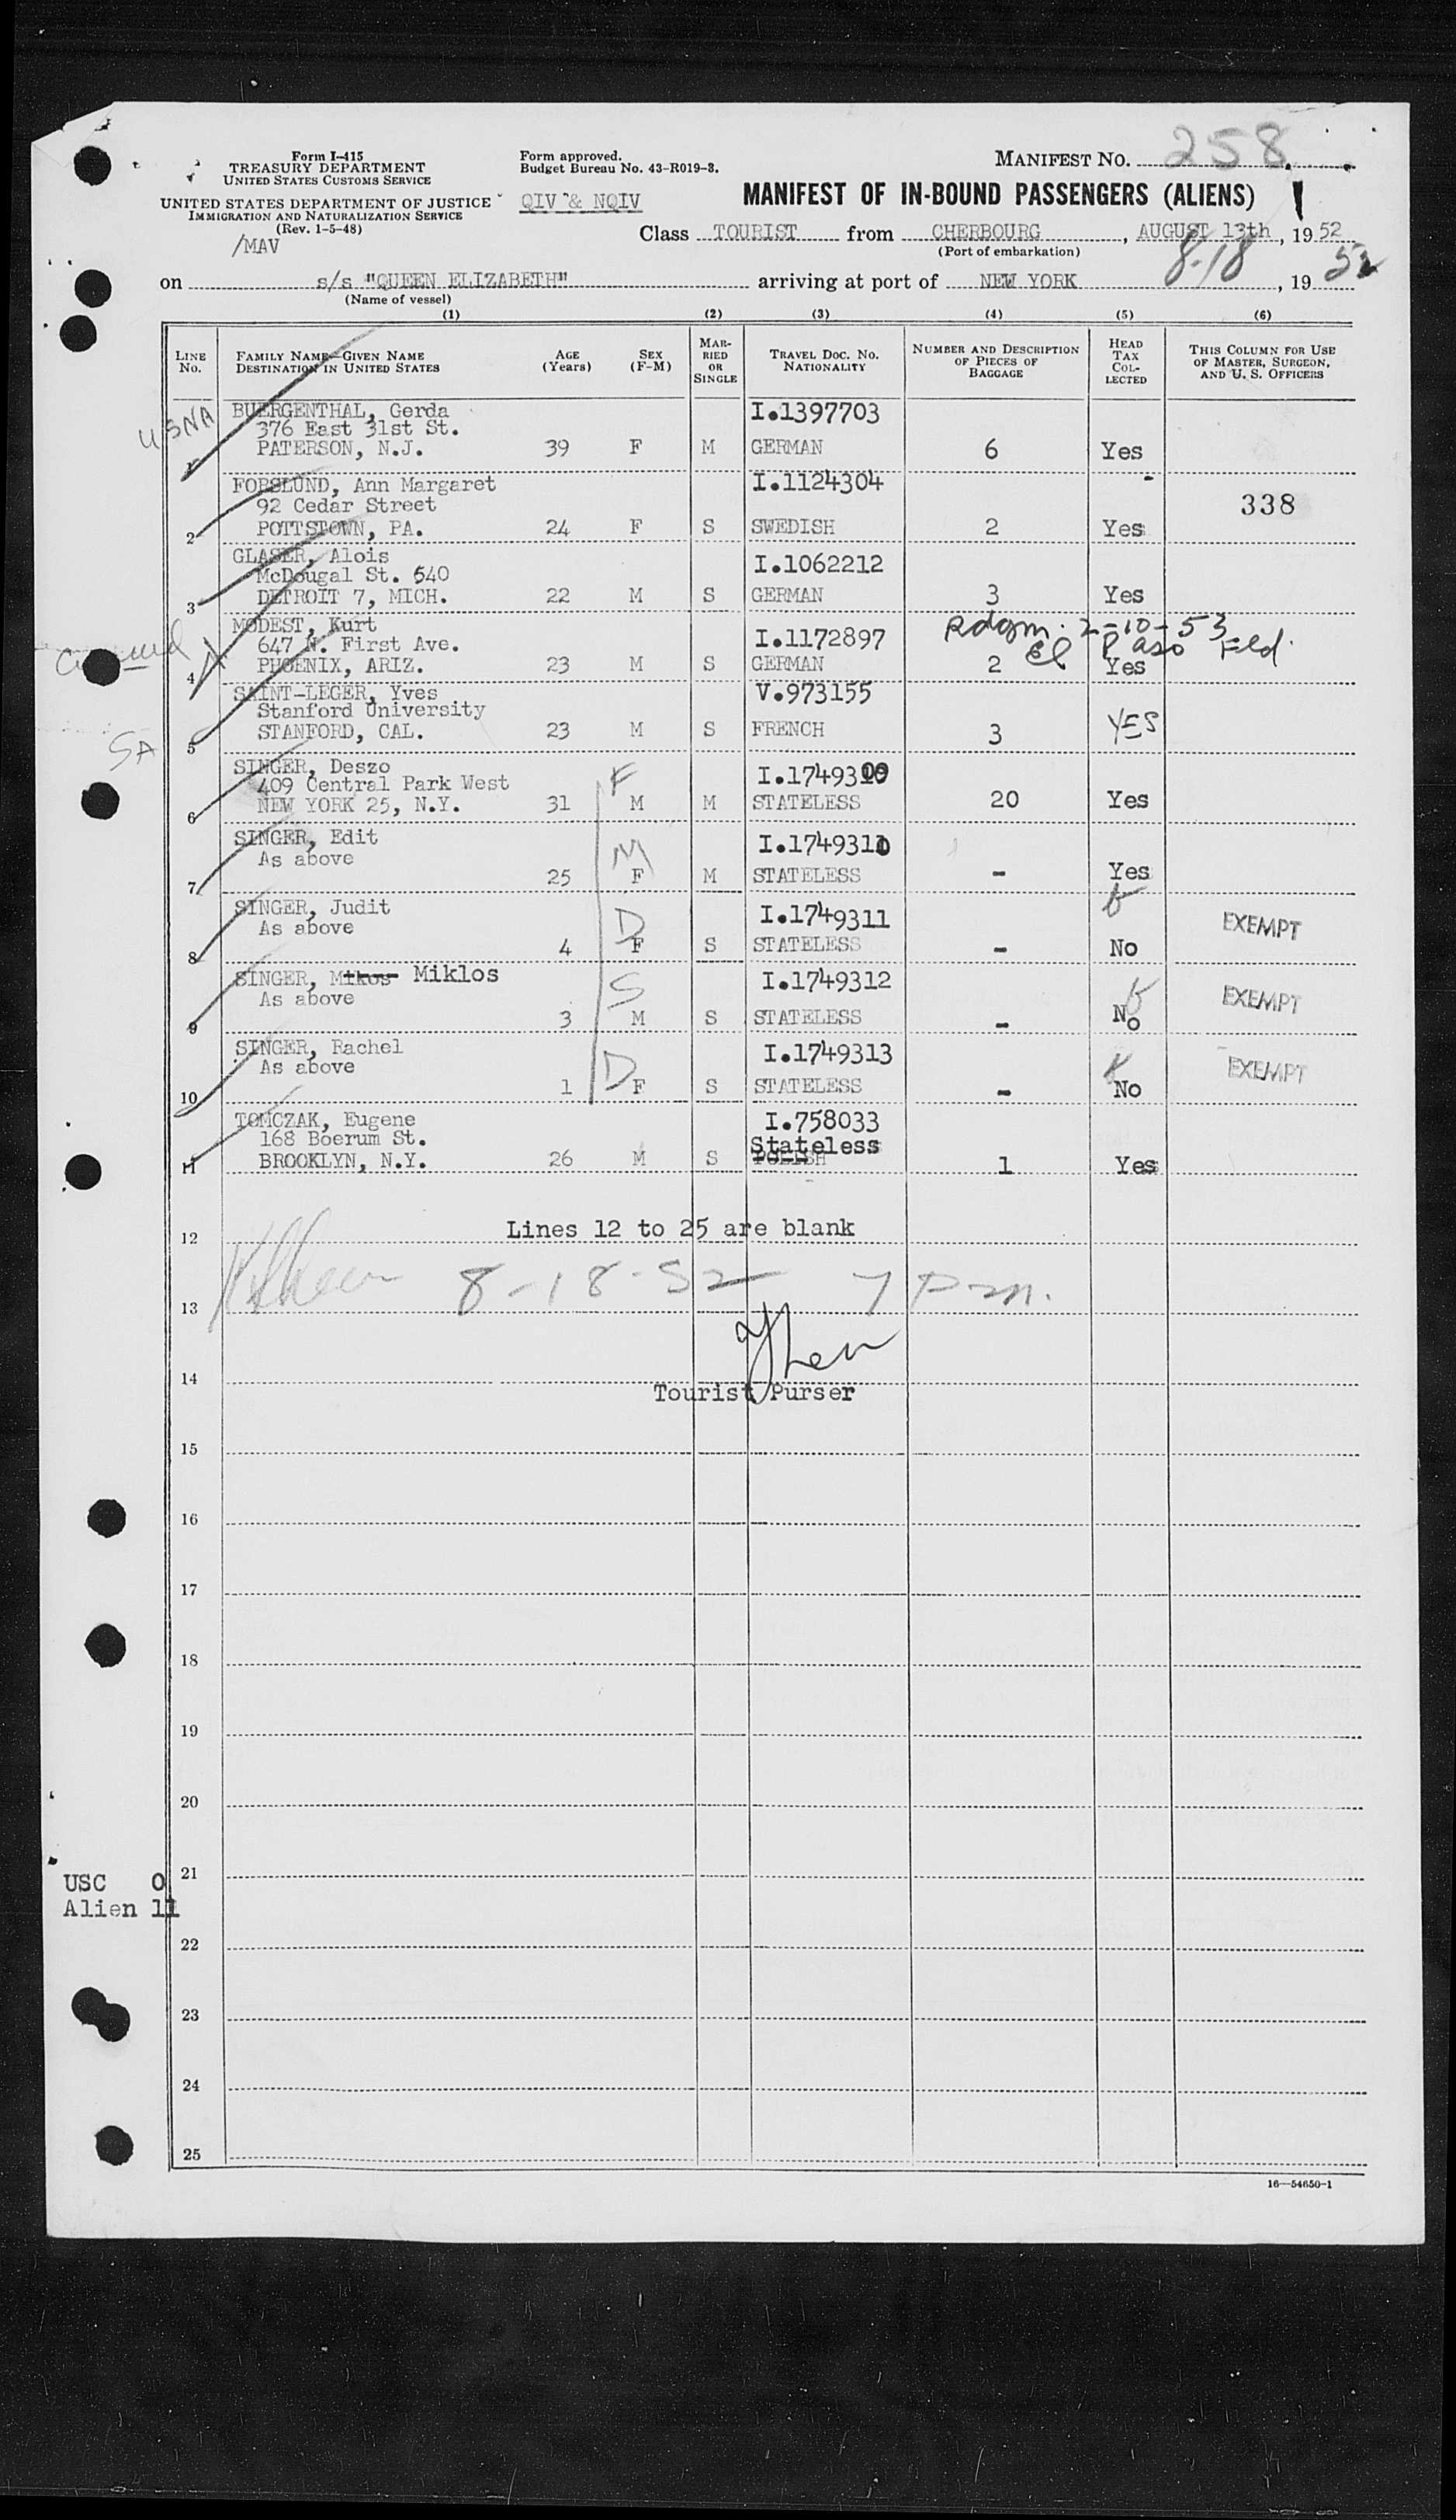 Form I-415
TREASURY DEPARTMENT
UNITED STATES CUSTOMS SERVICE
UNITED STATES DEPARTMENT OF JUSTICE
IMMIGRATION AND NATURALIZATION SERVICE
(Rev. 1-5-48)
/MAV
Form approved.
Budget Bureau No. 43-R019-3.
QIV & NQIV
MANIFEST NO. 258
MANIFEST OF IN-BOUND PASSENGERS (ALIENS)
Class TOURIST from CHERBOURG, AUGUST 13th, 1952
(Port of embarkation)
on s/s "QUEEN ELIZABETH" arriving at port of NEW YORK 8-18, 1952
(Name of vessel)
(1) (2) (3) (4) (5) (6)
LINE No. FAMILY NAME—GIVEN NAME DESTINATION IN UNITED STATES AGE (Years) SEX (F-M) MARRIED OR SINGLE TRAVEL DOC. NO. NATIONALITY NUMBER AND DESCRIPTION OF PIECES OF BAGGAGE HEAD TAX COLLECTED THIS COLUMN FOR USE OF MASTER, SURGEON, AND U. S. OFFICERS
USNA
BUERGENTHAL, Gerda I.1397703
376 East 31st St.
1 PATERSON, N.J. 39 F M GERMAN 6 Yes
FORSLUND, Ann Margaret I.1124304
92 Cedar Street 338
2 POTTSTOWN, PA. 24 F S SWEDISH 2 Yes
GLASER, Alois I.1062212
McDougal St. 640
3 DETROIT 7, MICH. 22 M S GERMAN 3 Yes
MODEST, Kurt I.1172897 Rdgm. 2-10-53
647 N. First Ave. El Paso Fld.
4 PHOENIX, ARIZ. 23 M S GERMAN 2 Yes
SAINT-LEGER, Yves V.973155
Stanford University
5 STANFORD, CAL. 23 M S FRENCH 3 YES
SA
SINGER, Deszo F
409 Central Park West
6 NEW YORK 25, N.Y. 31 M M STATELESS 20 Yes
SINGER, Edit M
As above
7 25 F M STATELESS - Yes
SINGER, Judit D I.1749311
As above EXEMPT
8 4 F S STATELESS - No
SINGER, Mikos Miklos S I.1749312
As above EXEMPT
9 3 M S STATELESS - No
SINGER, Rachel D I.1749313
As above EXEMPT
10 1 F S STATELESS - No
TOMCZAK, Eugene I.758033
168 Boerum St. Stateless
11 BROOKLYN, N.Y. 26 M S POLISH 1 Yes
Lines 12 to 25 are blank
12
8-18-52 7 Pm.
13
14
Tourist Purser
15
16
17
18
19
20
21
USC 0
Alien 11
22
23
24
25
16—54650-1